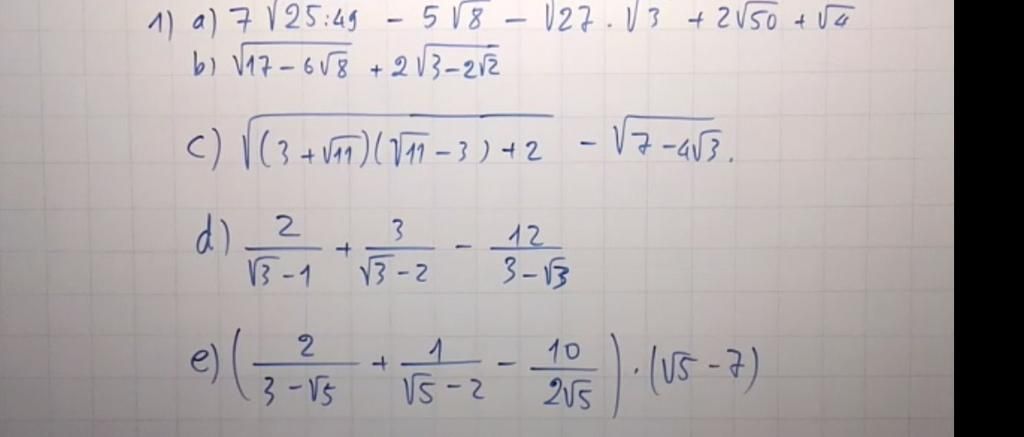 1) a) 7√25:49 - 5√8 - √27 . √3 + 2√50 + √4
b) √(17 - 6√8) + 2√(3-2√2)
c) √((3+√11)(√11-3)+2) - √(7-4√3).
d) 2/(√3-1) + 3/(√3-2) - 12/(3-√3)
e) (2/(3-√5) + 1/(√5-2) - 10/(2√5)) . (√5-7)